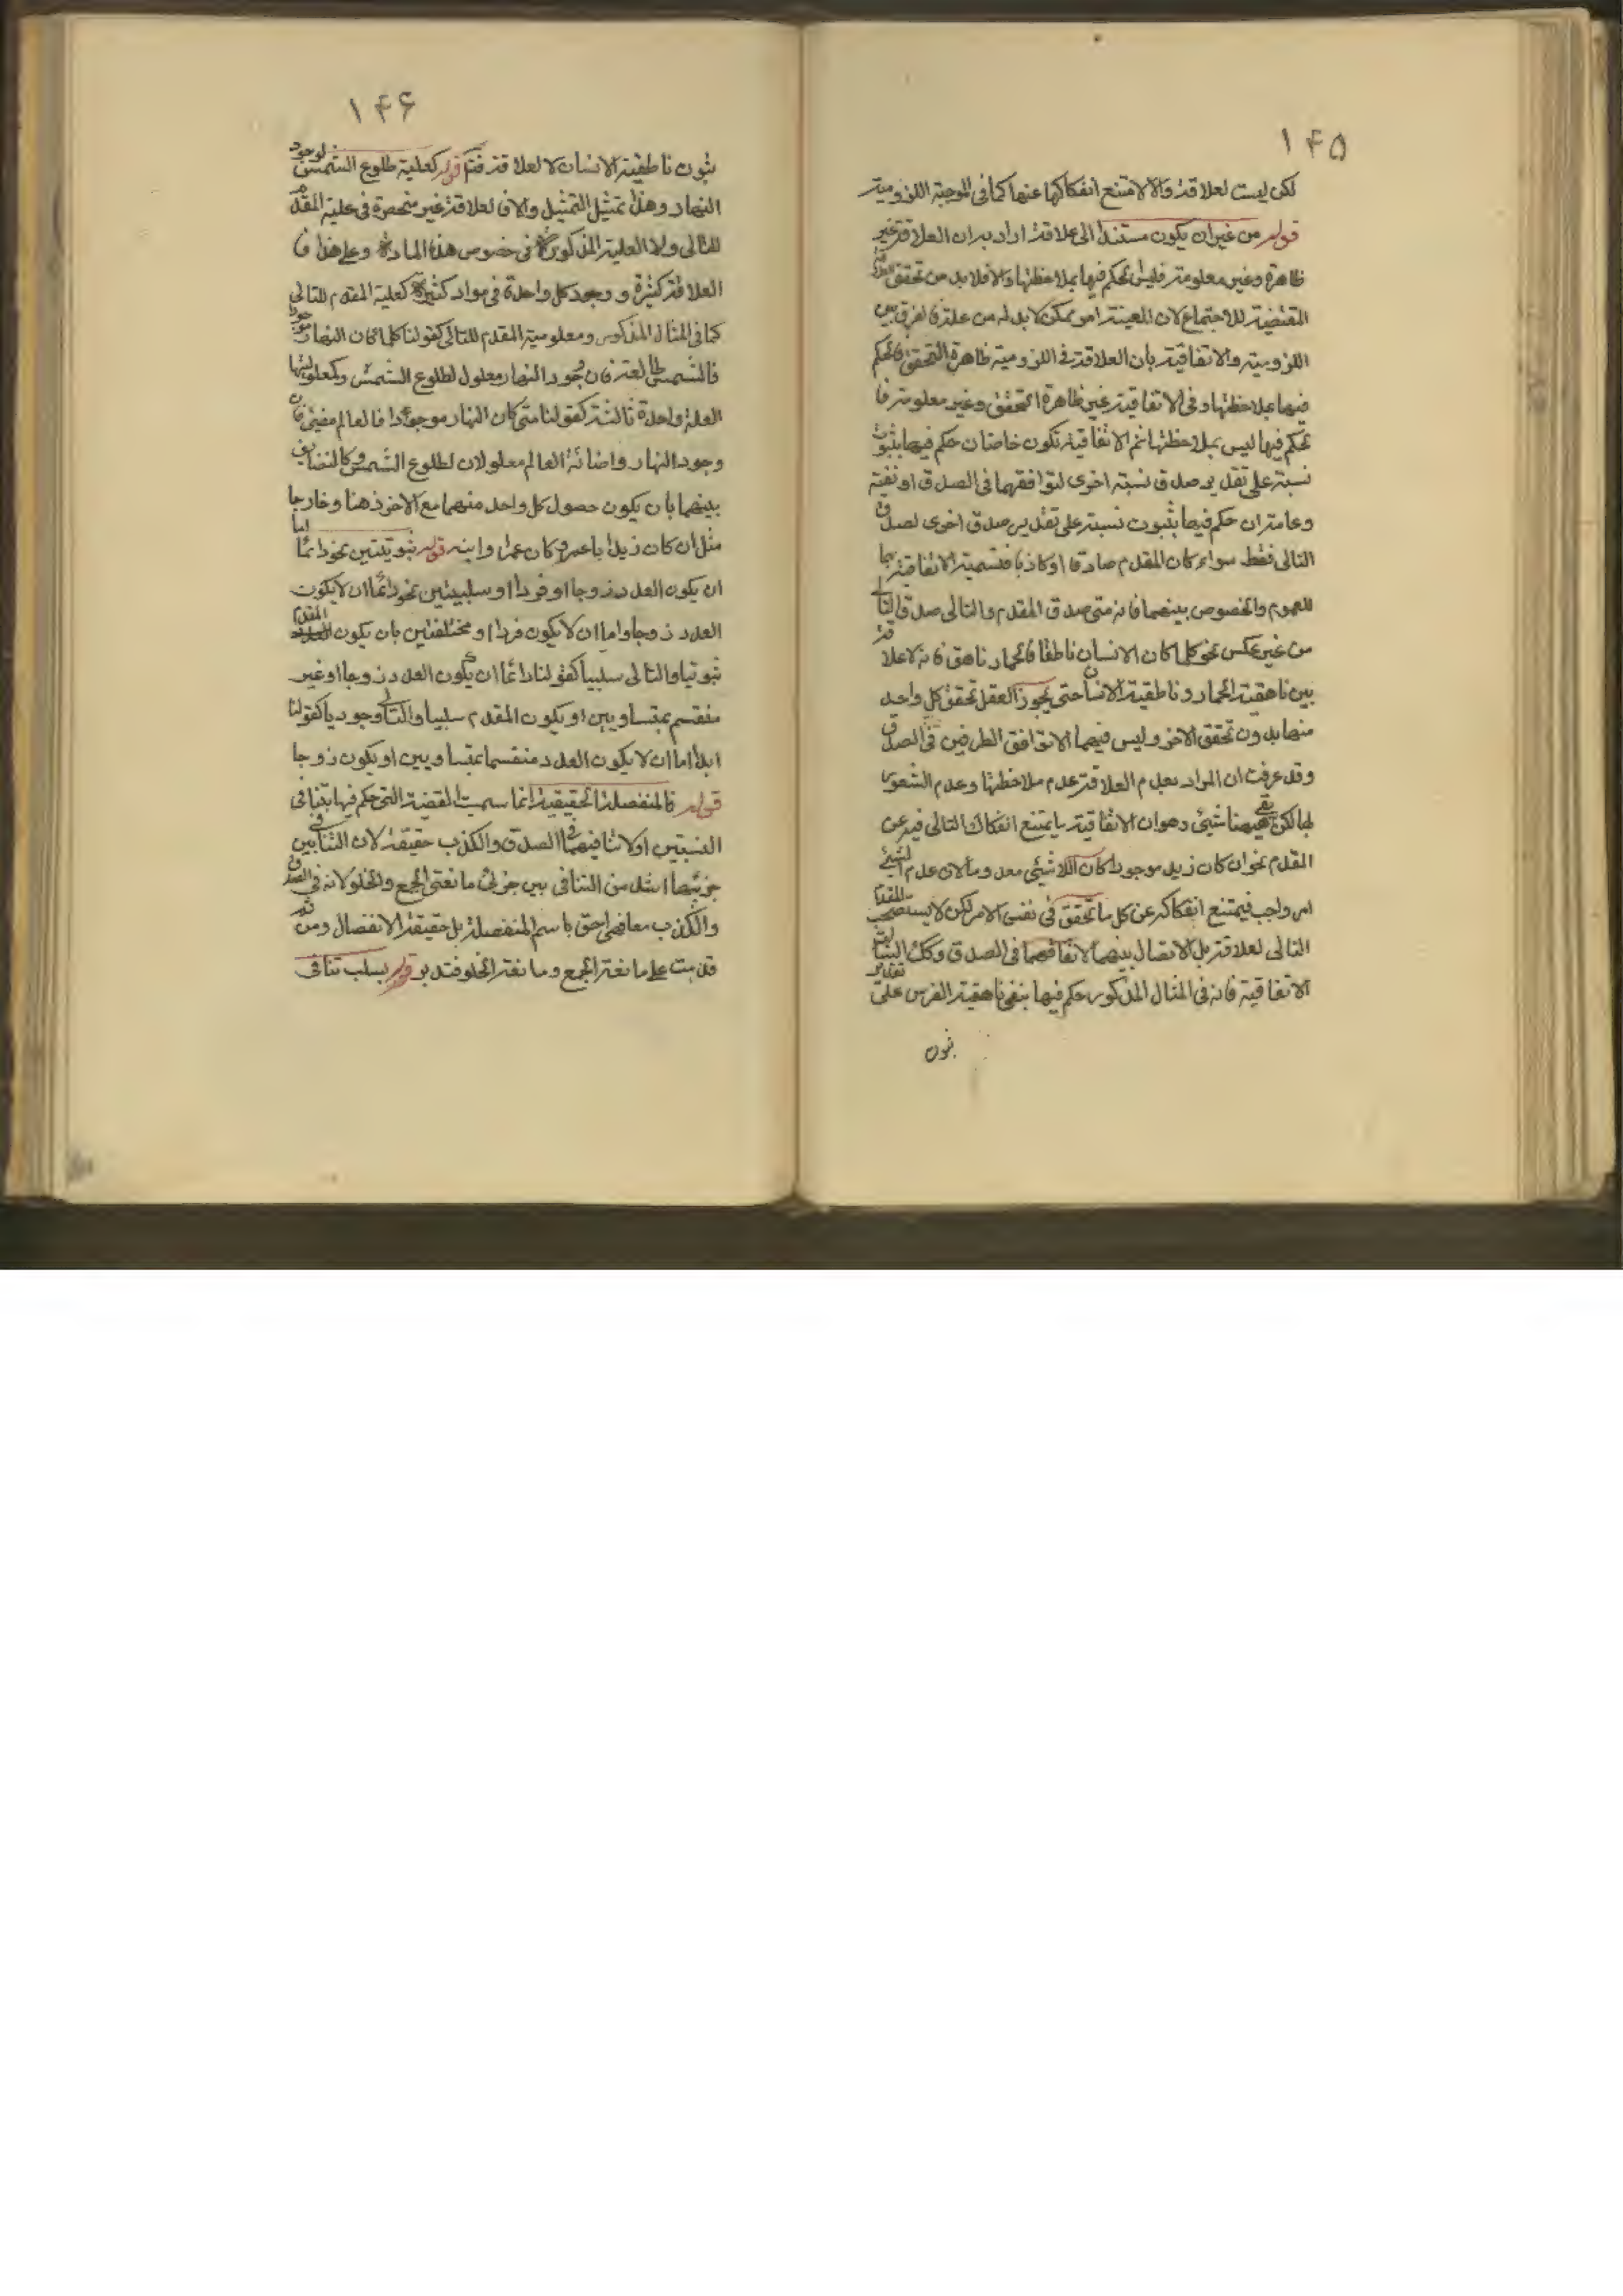 ۱۴۵
لكن ليست لعلاقة والا لامتنع انفكاكها عنها كما فى الموجبة اللزومية
قوله من غير ان يكون مستندا الى علاقة اراد به ان العلاقة غير
ظاهرة وغير معلومة فليس الحكم فيها بملاحظتها والا فلا بد من تحقق العلاقة
المقتضية للاجتماع لان المعية امر ممكن لا بد له من علة فالفرق بين
اللزومية والاتفاقية بان العلاقة فى اللزومية ظاهرة التحقق فالحكم
فيها بملاحظتها وفى الاتفاقية غير ظاهرة التحقق وغير معلومة فا
لحكم فيها ليس بملاحظتها ثم الاتفاقية تكون خاصة ان حكم فيها بثبوت
نسبة على تقدير صدق نسبة اخرى لتوافقهما فى الصدق او نفيه
وعامة ان حكم فيها بثبوت نسبة على تقدير صدق اخرى لصدق
التالى فقط سواء كان المقدم صادقا او كاذبا فتسمية الاتفاقية بها
للعموم والخصوص بينهما فانه متى صدق المقدم والتالى صدق التالى
من غير عكس نحو كلما كان الانسان ناطقا فالحمار ناهق فانه لا علاقة
بين ناهقية الحمار وناطقية الانسان حتى يجوز العقل تحقق كل واحد
منهما بدون تحقق الاخر وليس فيهما الا توافق الطرفين فى الصدق
وقد عرفت ان المراد بعدم العلاقة عدم ملاحظتها وعدم الشعور
بها لكن بقى ههنا شيئ وهو ان الاتفاقية ما يمتنع انفكاك التالى فيه عن
المقدم نحو ان كان زيد موجودا كان اللاشيئ معدوما لان عدم لشيئ
امر واجب فيمتنع انفكاكه عن كل ما تحقق فى نفس الامر لكن لا يستصحب المقدم
التالى لعلاقة بل الاتصال بينهما لاتفاقهما فى الصدق وكك السالبة
الاتفاقية فانه فى المثال المذكور حكم فيها بنفى ناهقية الفرس على تقدير
ثبوت
۱۴۶
ثبوت ناطقية الانسان لا لعلاقة فتم قوله كعلية طلوع الشمس لوجود
النهار وهذا تمثيل التمثيل والا فالعلاقة غير منحصرة فى علية المقدم
للتالى ولا العلية المذكورة فى خصوص هذه المادة وعلى هذا فا
لعلاقة كثيرة ووجود كل واحدة فى مواد كثيرة كعلية المقدم للتالى
كما فى المثال المذكور ومعلومية المقدم للتالى كقولنا كلما كان النهار موجودا
فالشمس طالعة فان وجود النهار معلول لطلوع الشمس وكمعلوليتهما
لعلة واحدة ثالثة كقولنا متى كان النهار موجودا فالعالم مضيئ فان
وجود النهار واضائة العالم معلولان لطلوع الشمس وكالتضايف
بينهما بان يكون حصول كل واحد منهما مع الاخر ذهنا وخارجا
مثل ان كان زيدا با عمرو كان عمرا وابنه قوله ثبوتيتين نحو دائما اما
ان يكون العدد زوجا او فردا او سلبيتين نحو دائما ان لا يكون
العدد زوجا واما ان لا يكون فردا او مختلفتين بان يكون المقدم
ثبوتيا والتالى سلبيا كقولنا دائما ان يكون العدد زوجا او غير
منقسم بمتساويين او يكون المقدم سلبيا والتالى وجوديا كقولنا
ابدا اما ان لا يكون العدد منقسما بمتساويين او يكون زوجا
قوله فالمنفصلة الحقيقية انما سميت القضية التى حكم فيها بتنافى
النسبتين او لا تنافيهما فى الصدق والكذب حقيقة لان التنافى بين
جزئيها اشد من التنافى بين جزئى مانعتى الجمع والخلو لانه فى الصدق
والكذب معا فهى احق باسم المنفصلة بل حقيقة الانفصال ومن ثم
قدمت على مانعة الجمع ومانعة الخلو فتدبر قوله بسلب تنافى